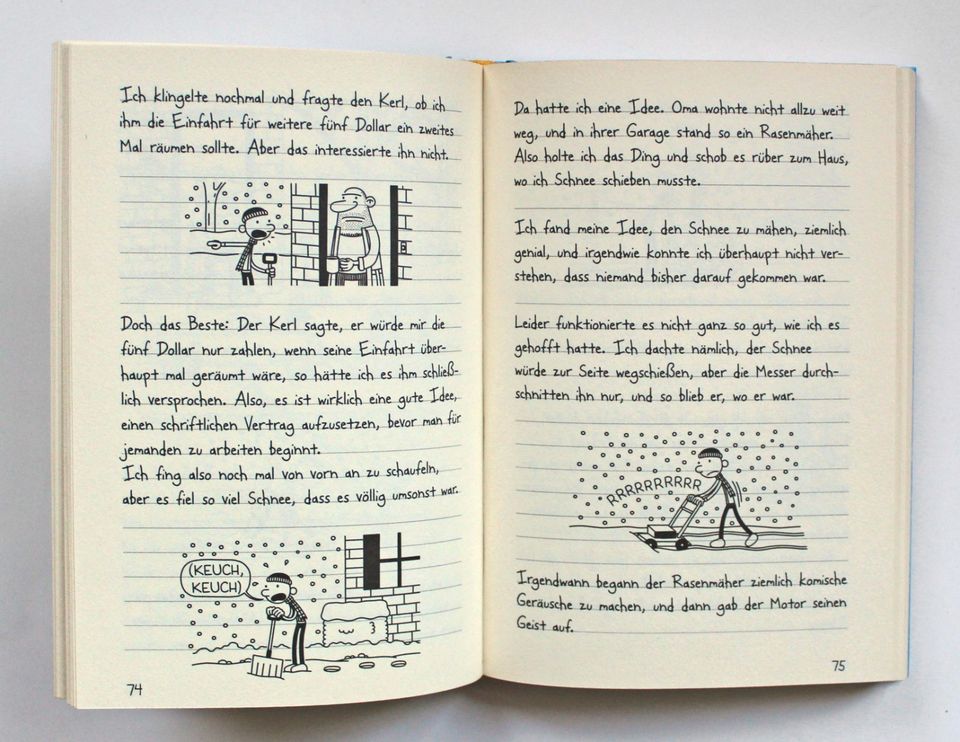 Ich klingelte nochmal und fragte den Kerl, ob ich
ihm die Einfahrt für weitere fünf Dollar ein zweites
Mal räumen sollte. Aber das interessierte ihn nicht.
Doch das Beste: Der Kerl sagte, er würde mir die
fünf Dollar nur zahlen, wenn seine Einfahrt über-
haupt mal geräumt wäre, so hätte ich es ihm schließ-
lich versprochen. Also, es ist wirklich eine gute Idee,
einen schriftlichen Vertrag aufzusetzen, bevor man für
jemanden zu arbeiten beginnt.
Ich fing also noch mal von vorn an zu schaufeln,
aber es fiel so viel Schnee, dass es völlig umsonst war.
(KEUCH,
KEUCH)
74
Da hatte ich eine Idee. Oma wohnte nicht allzu weit
weg, und in ihrer Garage stand so ein Rasenmäher.
Also holte ich das Ding und schob es rüber zum Haus,
wo ich Schnee schieben musste.
Ich fand meine Idee, den Schnee zu mähen, ziemlich
genial, und irgendwie konnte ich überhaupt nicht ver-
stehen, dass niemand bisher darauf gekommen war.
Leider funktionierte es nicht ganz so gut, wie ich es
gehofft hatte. Ich dachte nämlich, der Schnee
würde zur Seite wegschießen, aber die Messer durch-
schnitten ihn nur, und so blieb er, wo er war.
RRRRRRRRRR
Irgendwann begann der Rasenmäher ziemlich komische
Geräusche zu machen, und dann gab der Motor seinen
Geist auf.
75